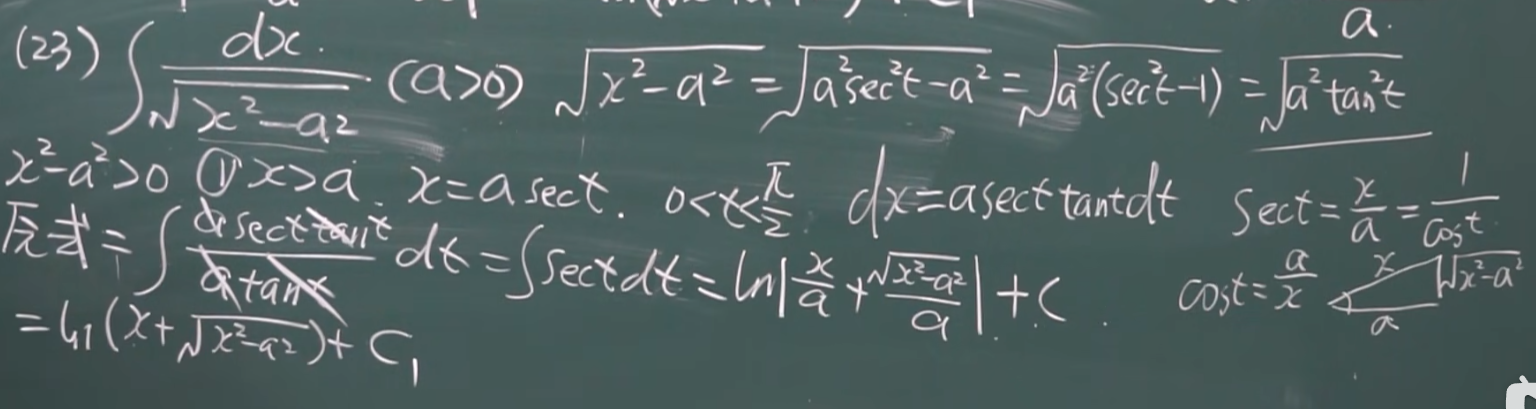 a.
(23) ∫ dx/√(x²-a²) (a>0) √(x²-a²) = √(a²sec²t-a²) = √(a²(sec²t-1)) = √(a²tan²t)
x²-a²>0 ① x>a x=a sect. 0<t<π/2 dx=a sect tant dt Sect = x/a = 1/cost
原式 = ∫ (a sect tant)/(a tant) dt = ∫ Sect dt = ln|x/a + √(x²-a²)/a| + C. cost = a/x x √(x²-a²) a
= ln(x+√(x²-a²)) + C₁